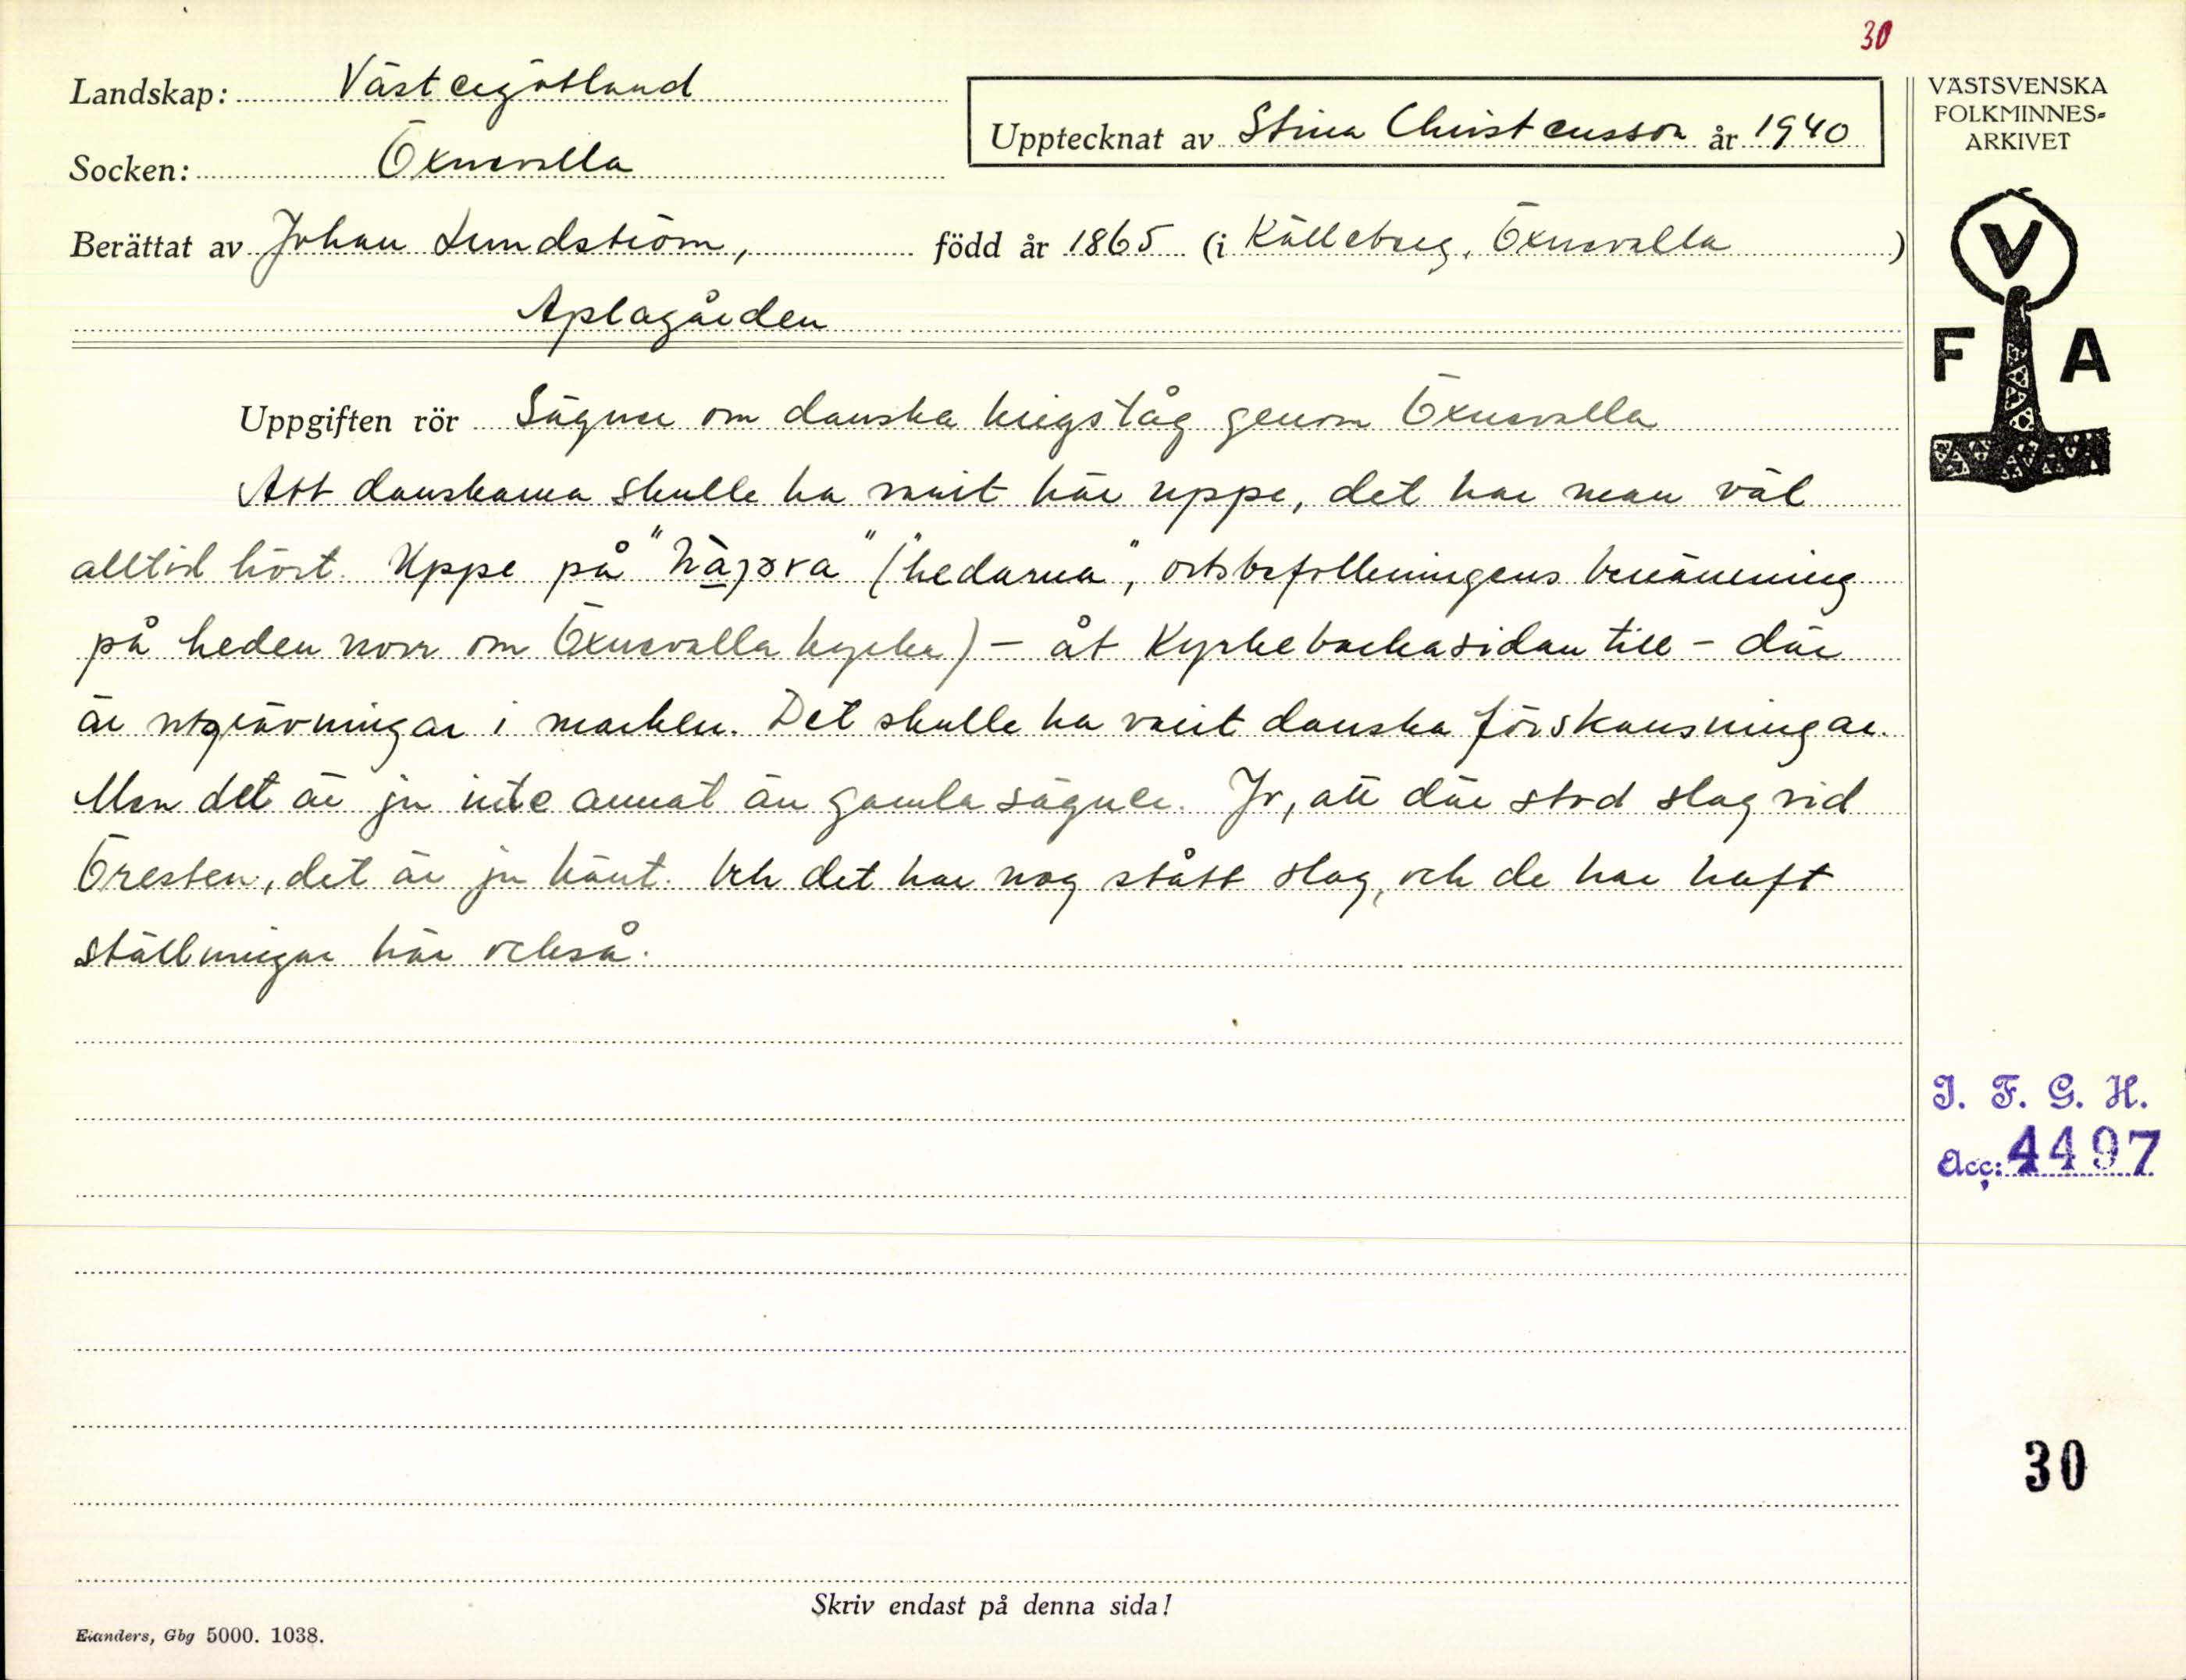 30
Landskap: Västergötland
Socken: Öxnevalla
Upptecknat av Stina Christensson år 1940
Berättat av Johan Lundström, född år 1865 (i Källeberg, Öxnevalla)
Aplagården
Uppgiften rör Sägner om danska krigståg genom Öxnevalla
Att danskarna skulle ha varit här uppe, det har man väl
alltid hört. Uppe på "hàjəra" ("hedarna", ortsbefolkningens benämning
på heden norr om Öxnevalla kyrka) - åt Kyrkebackasidan till - där
är utgrävningar i marken. Det skulle ha varit danska förskansningar.
Men det är ju inte annat än gamla sägner. Jo, att där stod slag vid
Öresten, det är ju känt. Och det har nog stått slag, och de har haft
ställningar här också.
Skriv endast på denna sida!
Elanders, Gbg 5000. 1038.
VÄSTSVENSKA
FOLKMINNES=
ARKIVET
V
F A
I. F. G. H.
Acc: 4497
30